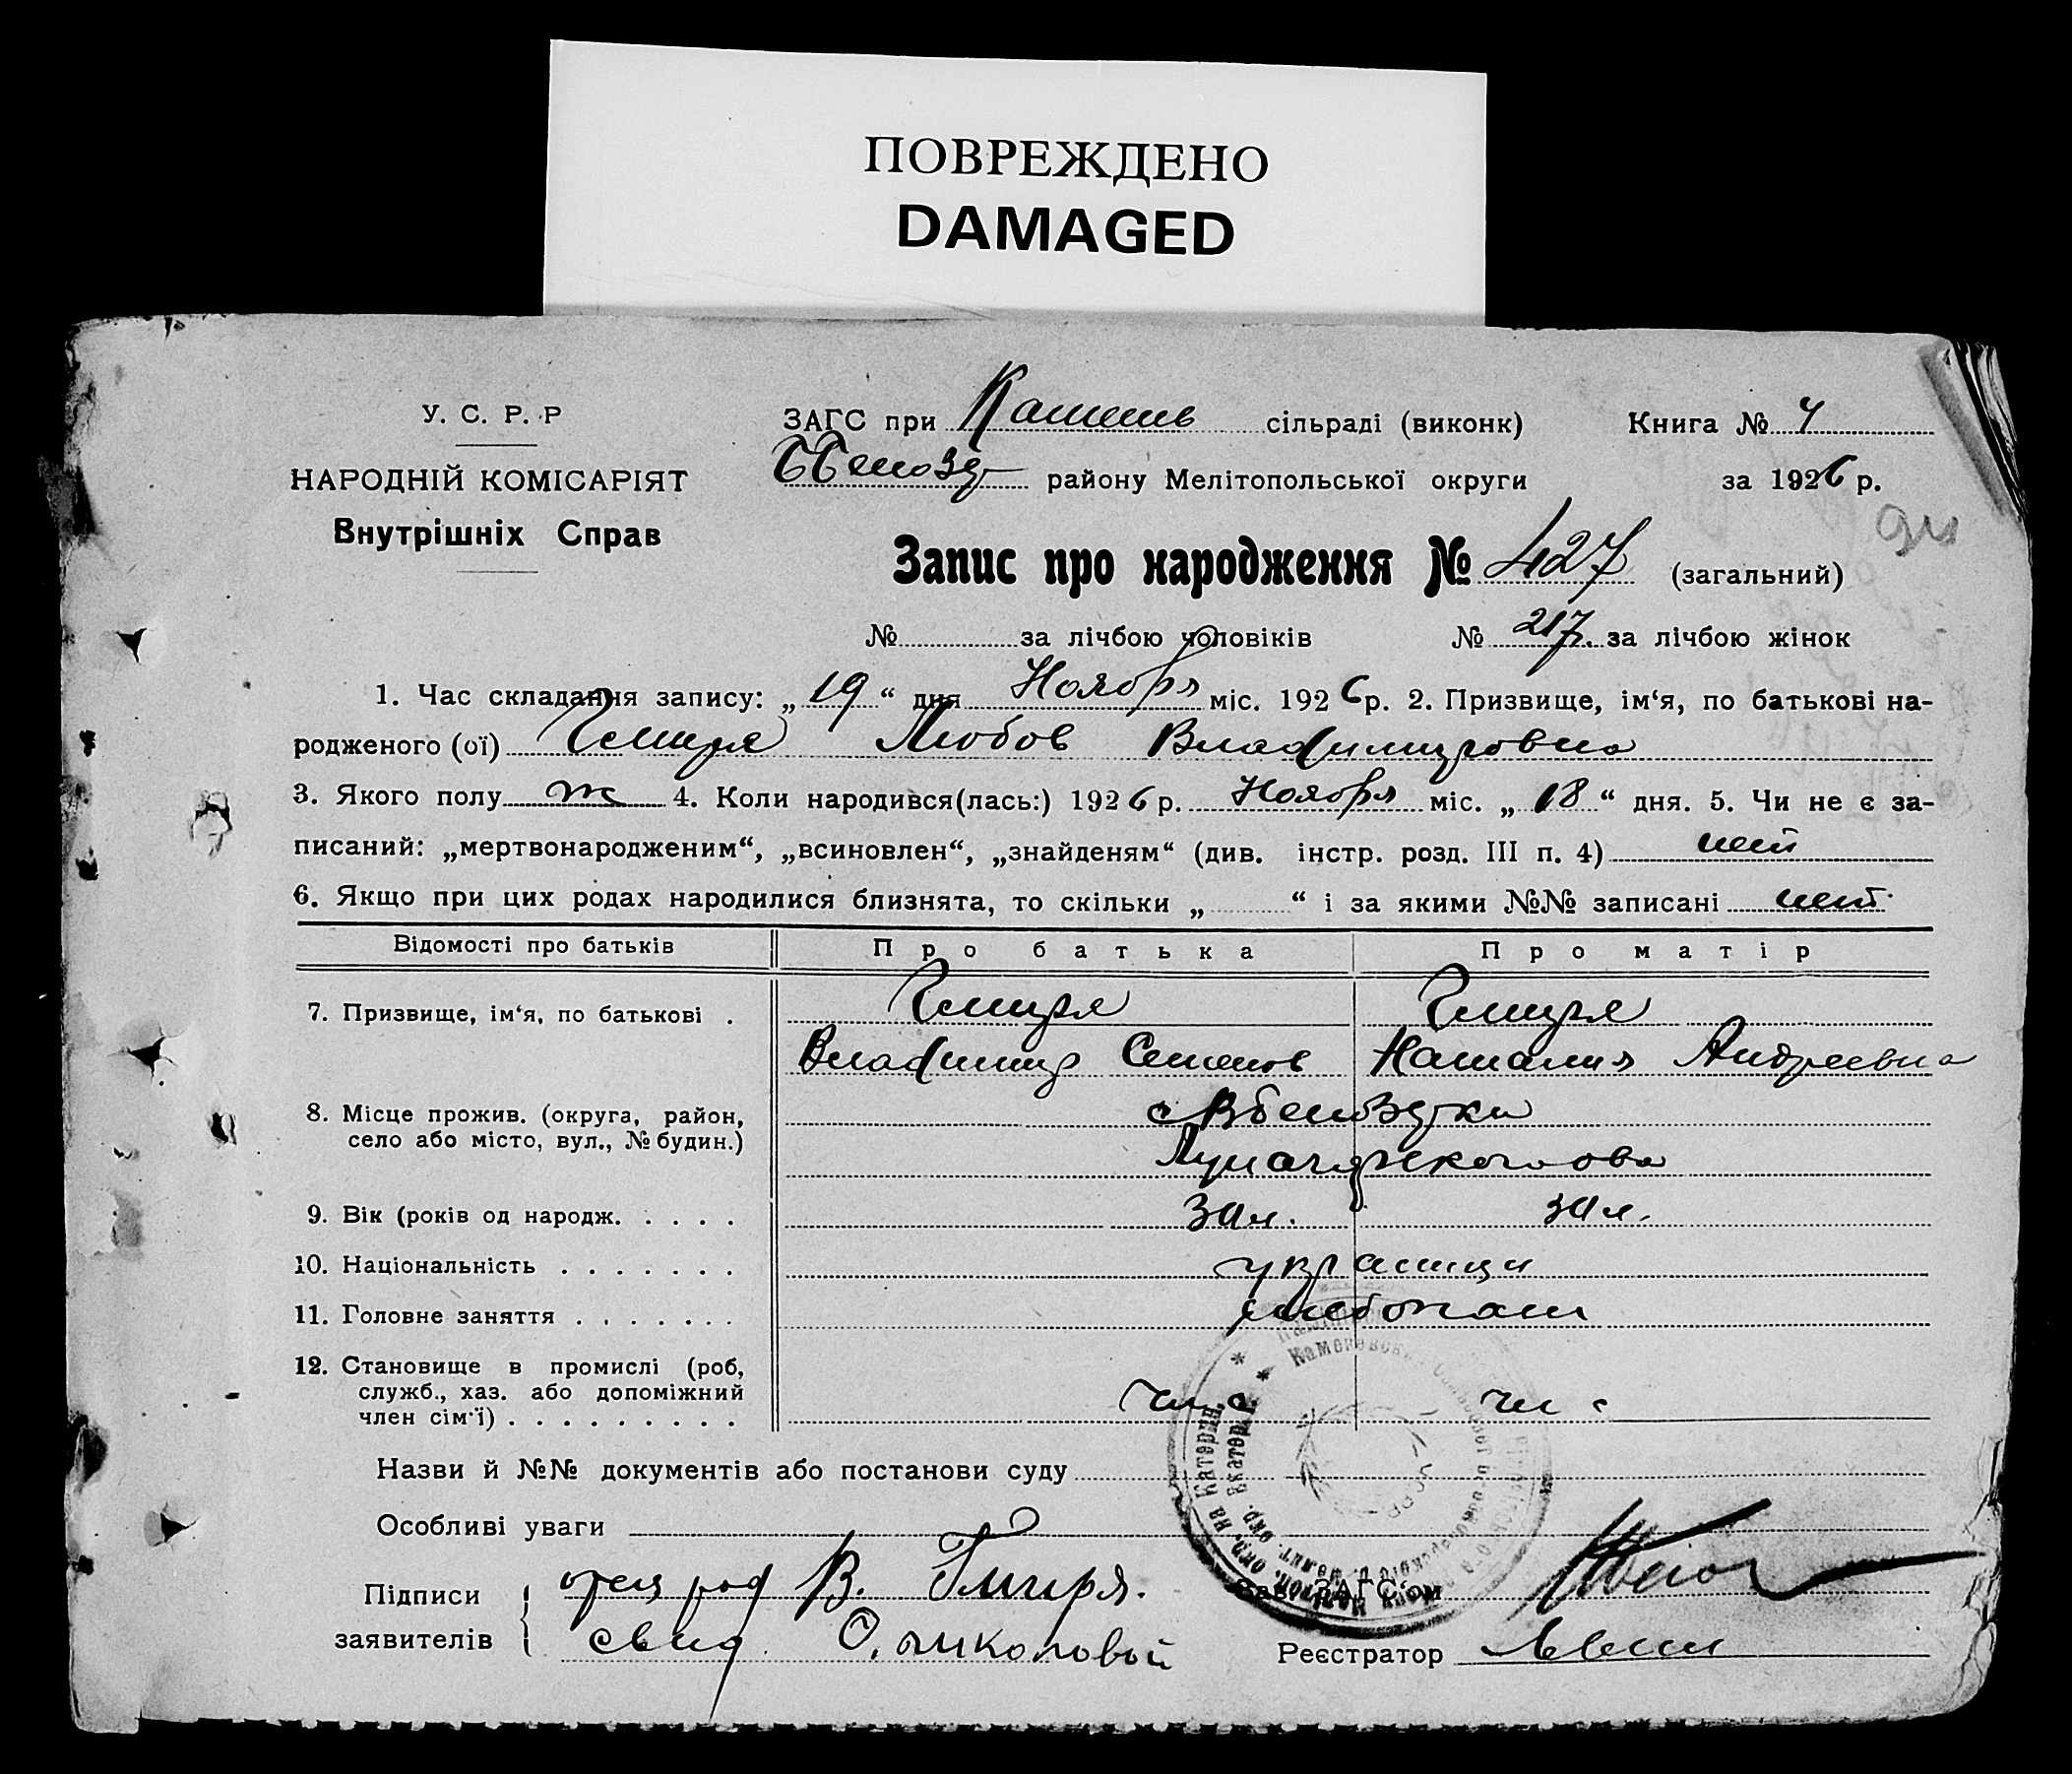 ПОВРЕЖДЕНО
DAMAGED
У. С. Р. Р
НАРОДНІЙ КОМІСАРІЯТ
Внутрішніх Справ
ЗАГС при сільраді (виконк)
району Мелітопольської округи
Книга № 4
за 1926 р.
Запис про народження № 427 (загальний)
№ за лічбою чоловіків № 217. за лічбою жінок
1. Час складання запису: „19“ дня Ноября міс. 1926 р. 2. Призвище, ім‘я, по батькові на-
родженого (ої) Любов Владимировна
3. Якого полу ж 4. Коли народився(лась:) 1926 р. Ноября міс. „18“ дня. 5. Чи не є за-
писаний: „мертвонародженим“, „всиновлен“, „знайденям“ (див. інстр. розд. III п. 4) нет
6. Якщо при цих родах народилися близнята, то скільки „ “ і за якими №№ записані нет
Відомості про батьків Про батька Про матір
7. Призвище, ім‘я, по батькові .
Владимир Семенов Наталия Андреевна
8. Місце прожив. (округа, район,
село або місто, вул., № будин.)
9. Вік (років од народж. . . . .
10. Національність . . . . . . . украинци
11. Головне заняття . . . . . . . хлебопаш
12. Становище в промислі (роб,
служб., хаз. або допоміжний
член сім‘ї) . . . . . . . . .
Назви й №№ документів або постанови суду
Особливі уваги
Підписи
заявителів
отец род В.
свид. О.
Зав. ЗАГС‘ом
Реєстратор